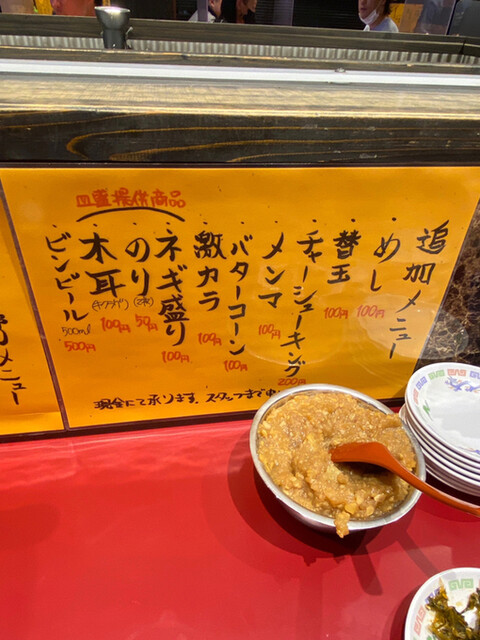 追加メニュー
・めし 100円
・替玉 100円
・チャーシューキング 200円
・メンマ 100円
・バターコーン 100円
・激カラ 100円
皿置提供商品
・ネギ盛り 100円
・のり 50円
・木耳 (キクラゲ) 100円
・ビンビール 500ml 500円
現金にて承ります。スタッフまで
メニュー